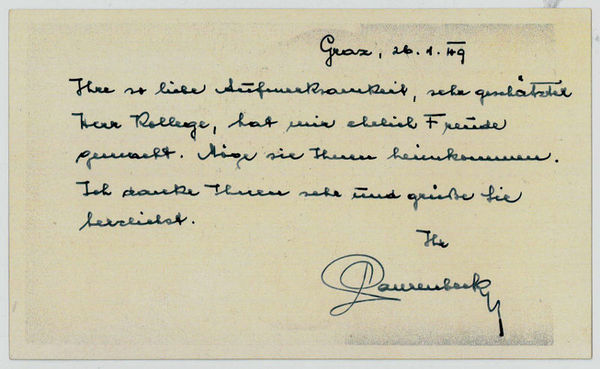 Graz, 26.1.49
Ihre so liebe Aufmerksamkeit, sehr geschätzter
Herr Kollege, hat mir ehrlich Freude
gemacht. Möge sie Ihnen heimkommen.
Ich danke Ihnen sehr und grüße Sie
herzlichst.
Ihr